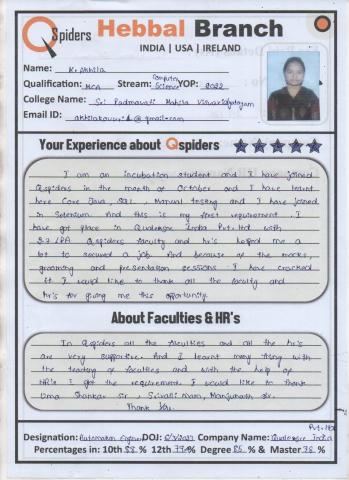 Qspiders Hebbal Branch
INDIA | USA | IRELAND
Name: K. Akhila
Qualification: MCA Stream: Computer Science YOP: 2022
College Name: Sri Padmavati Mahila Visvavidyalayam
Email ID: @gmail.com
Your Experience about Qspiders
I am an incubation student and I have joined
Qspiders in the month of October and I have learnt
here Core Java, SQL, Manual testing and I have joined
in Selenium. And this is my first requirement. I
have got place in Qualesce India Pvt. Ltd with
2.7 LPA Qspiders faculty and hr's helped me a
lot to secured a job. And because of the mocks,
grooming and presentation sessions I have cracked
it. I would like to thank all the faculty and
hr's for giving me this opportunity.
About Faculties & HR's
In Qspiders all the faculties and all the hr's
are very supportive. And I learnt many thing with
the teaching of faculties and with the help of
HR's I got the requirement. I would like to thank
Uma Shankar sir, Srivalli mam, Manjunath sir.
Thank You.
Designation: Automation Engineer DOJ: Company Name: Qualesce India Pvt. Ltd
Percentages in: 10th 88 % 12th 77 % Degree 85 % & Master 78 %